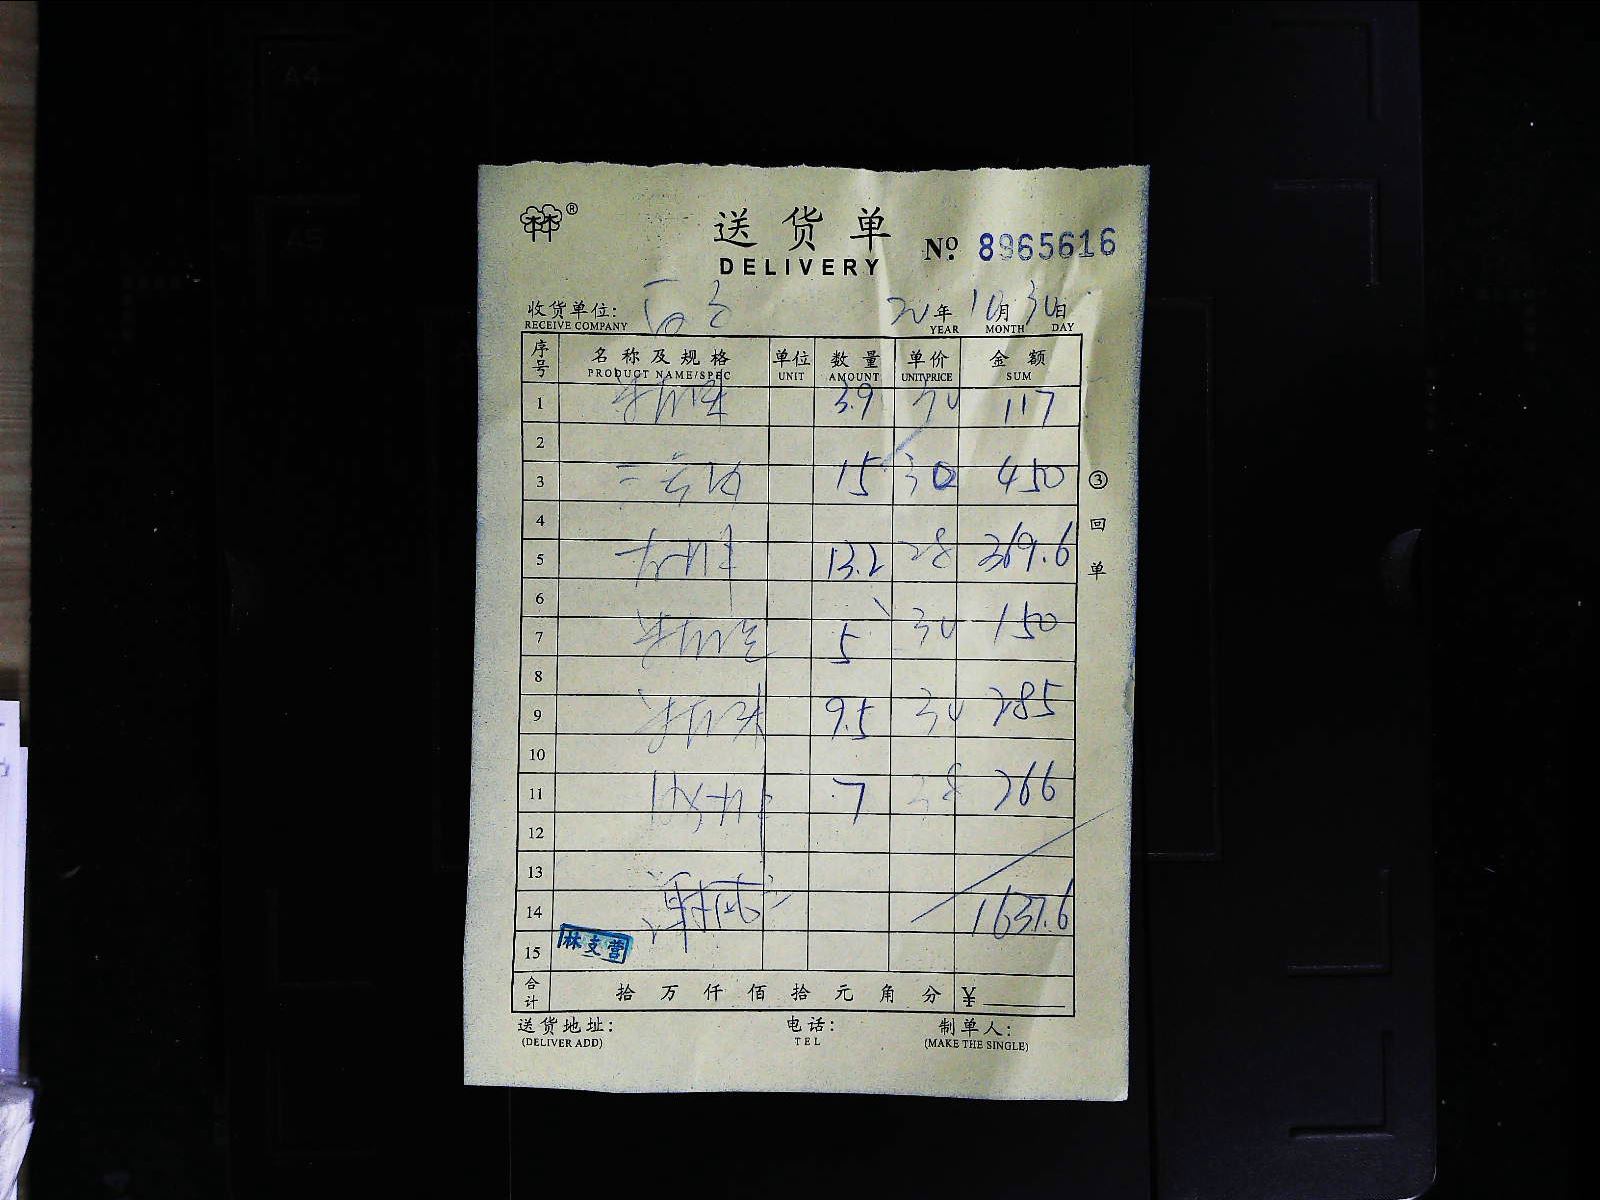 A4
A5
®
送货单
DELIVERY
No. 8965616
收货单位:
RECEIVE COMPANY
年 10月30日
YEAR MONTH DAY
序号 名称及规格 单位 数量 单价 金额
PRODUCT NAME/SPEC UNIT AMOUNT UNIT PRICE SUM
1 3.9 30 117
2
3 二号 15 30 450
4
5 13.2 28 369.6
6
7 5 30 150
8
9 9.5 30 285
10
11 7 38 266
12
13
14 1637.6
15 林支营
合计 拾 万 仟 佰 拾 元 角 分 ¥
③回单
送货地址: 电话: 制单人:
(DELIVER ADD) TEL (MAKE THE SINGLE)